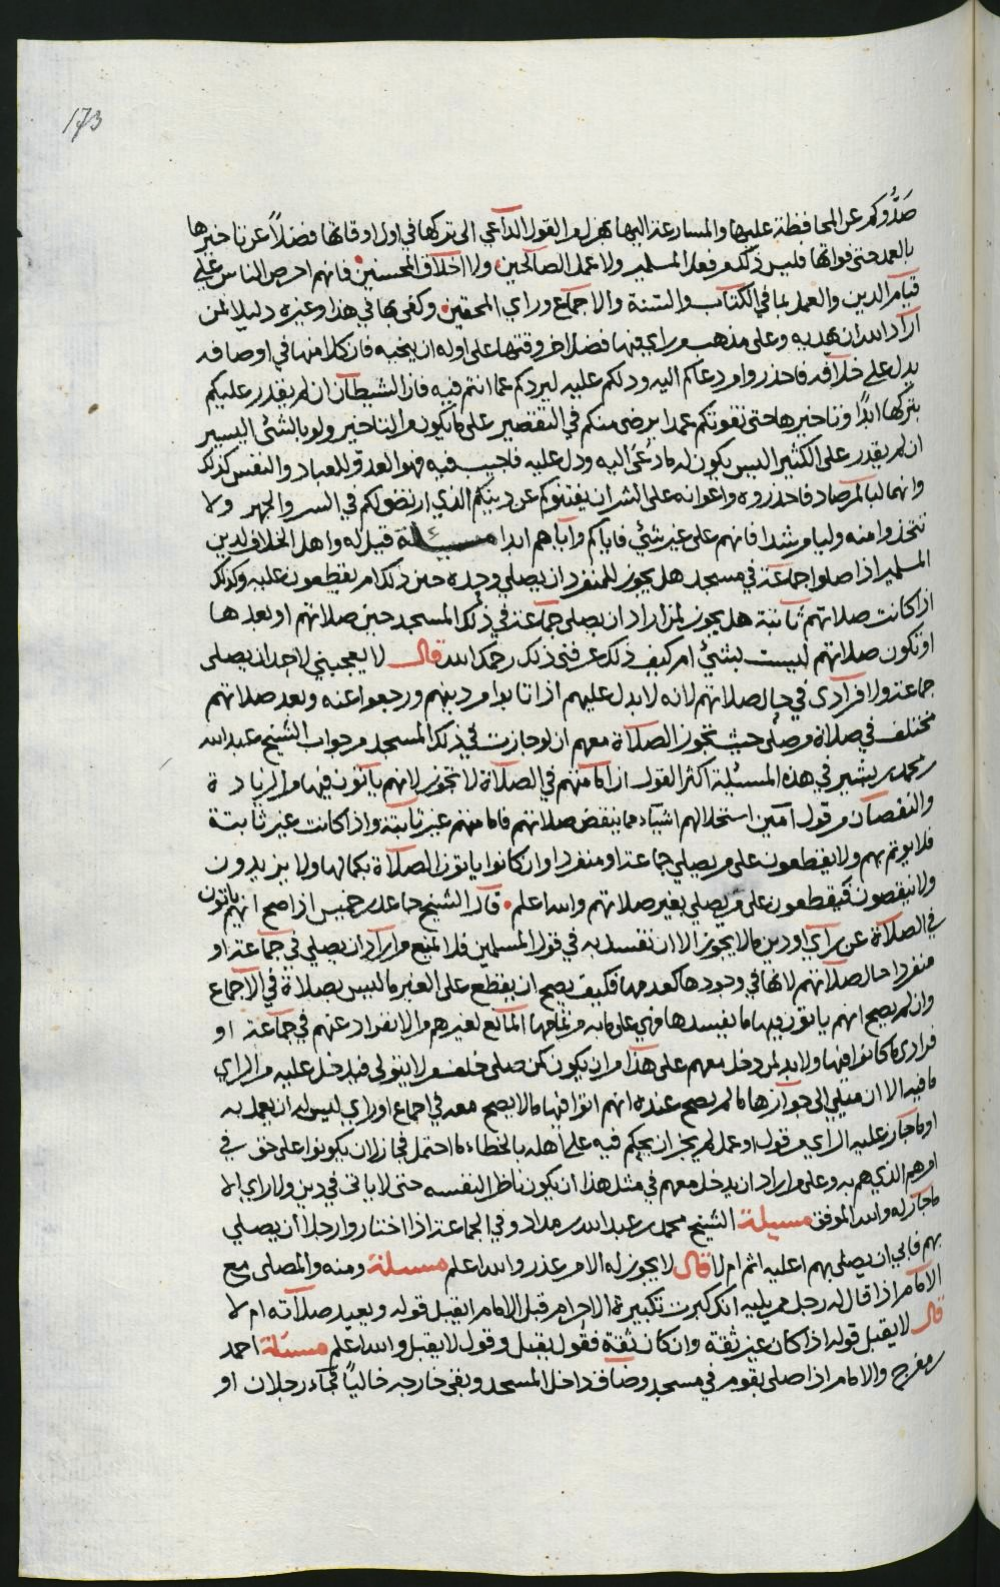 173
صدوكم عن المحافظة عليها والمسارعة اليها بهزله والقول الداعي الى تركها في اول اوقاتها فضلاً عن تاخيرها
بالعمد حتى فواتها فليس ذلك من فعل المسلمين ولا عمل الصالحين ولا اخلاق المحسنين فانهم احرص الناس على
قيام الدين والعمل بما في الكتاب والسنة والاجماع وراي المحقين وكفى بها في هذا وغيره دليلا لمن
اراد الله ان يهديه وعلى مذهب من راى فيها فضل اخر وقتها على اوله ان يخبه فان كلا منها في اوصافه
يدل على خلافه فاحذروا من دعاكم اليه ودلكم عليه ليردكم عما انتم فيه فان الشيطان ان لم يقدر عليكم
بتركها ابدًا وتاخيرها حتى تفوتكم عمدا يرضى منكم في التقصير على ما يكون من التاخير ولو بالشئ اليسير
ان لم يقدر على الكثير اليس يكون له ما دعى اليه ودل عليه فاجيب فيه فهو العدو للعباد والنفس كذلك
وانهما لبالمرصاد فاحذروه واعوانه على الشر ان يفتنوكم عن دينكم الذي ارتضى لكم في السر والجهر ولا
تتخذوا منه وليا مرشدا فانهم على غير شئ فاياكم واياهم ابدا مسئلة قيل له واهل الخلاف لدين
المسلمين اذا صلوا جماعة في مسجد هل يجوز للمنفرد ان يصلي وحده حين ذلك ام يقطعون عليه وكذلك
اذا كانت صلاتهم ثابتة هل يجوز لمن اراد ان يصلي جماعة في ذلك المسجد حين صلاتهم او بعدها
او تكون صلاتهم ليست بشئ ام كيف ذلك عرفني ذلك رحمك الله قال لا يعجبني لاحد ان يصلى
جماعة ولا فرادى في حال صلاتهم لانه لا بدل عليهم اذا تابوا من دينهم ورجعوا عنه وبعد صلاتهم
مختلف في صلاة من صلى حيث تجوز الصلاة معهم ان لو جازت في ذلك المسجد من جواب الشيخ عبد الله
بن محمد بن بشير في هذه المسئلة اكثر القول ان امامتهم في الصلاة لا تجوز لانهم ياتون فيها من الزيادة
والنقصان من قول امين استحلالهم اشياء مما ينقض صلاتهم فامامتهم غير ثابتة واذا كانت غير ثابتة
فلا يوتم بهم ولا يقطعون على من يصلي جماعة او منفردا وان كانوا ياتون الصلاة بكمالها ولا يزيدون
ولا ينقصون فيقطعون على من يصلي بغير صلاتهم والله اعلم قال الشيخ جاعد بن خميس اذا صح انهم ياتون
في الصلاة عن راي او دين ما لا يجوز الا ان تفسد به في قول المسلمين فلا امنع من اراد ان يصلي في جماعة او
منفردا حال صلاتهم لانها في وجودها كعدمها فكيف يصح ان يقطع على الغير ما ليس بصلاة في الاجماع
وان لم يصح انهم ياتون فيها ما يفسدها فهي على ما به من تمامها المانع لغيرهم من الانفراد عنهم في جماعة او
فرادى ما كانوا فيها ولا بد لمن دخل معهم على هذا من ان يكون كمن صلى خلف من لا يتولى فيدخل عليه من الراي
ما فيه الا ان ميلي الى جوازها ما لم يصح عنده انهم اتوا فيها ما لا يصح معه في اجماع او راي ليس له ان يعمل به
او ما جاز عليه الراي من قول او عمل لم يجز ان يحكم فيه على اهله بالخطاء ما احتمل فجاز لان يكونوا على حق في
امرهم الذي هم به وعلى من اراد ان يدخل معهم في مثل هذا ان يكون ناظرا لنفسه حتى لا ياتى في دين ولا راي الا
ما جاز له والله الموفق مسيلة الشيخ محمد بن عبد الله بن مداد وفي الجماعة اذا اختاروا رجلا ان يصلي
بهم فابى ان يصلي بهم اعليه اثم ام لا قال لا يجوز له الا من عذر والله اعلم مسئلة ومنه والمصلى مع
الامام اذا قال له رجل ممن يليه انك كبرت تكبيرة الاحرام قبل الامام ايقبل قوله ويعيد صلاته ام لا
قال لا يقبل قوله اذا كان غير ثقة وان كان ثقة فقول يقبل وقول لا يقبل والله اعلم مسئلة احمد
بن مفرج والامام اذا صلى بقوم في مسجد وضاق داخل المسجد وبقى خارجه خالياً فجاء رجلان او